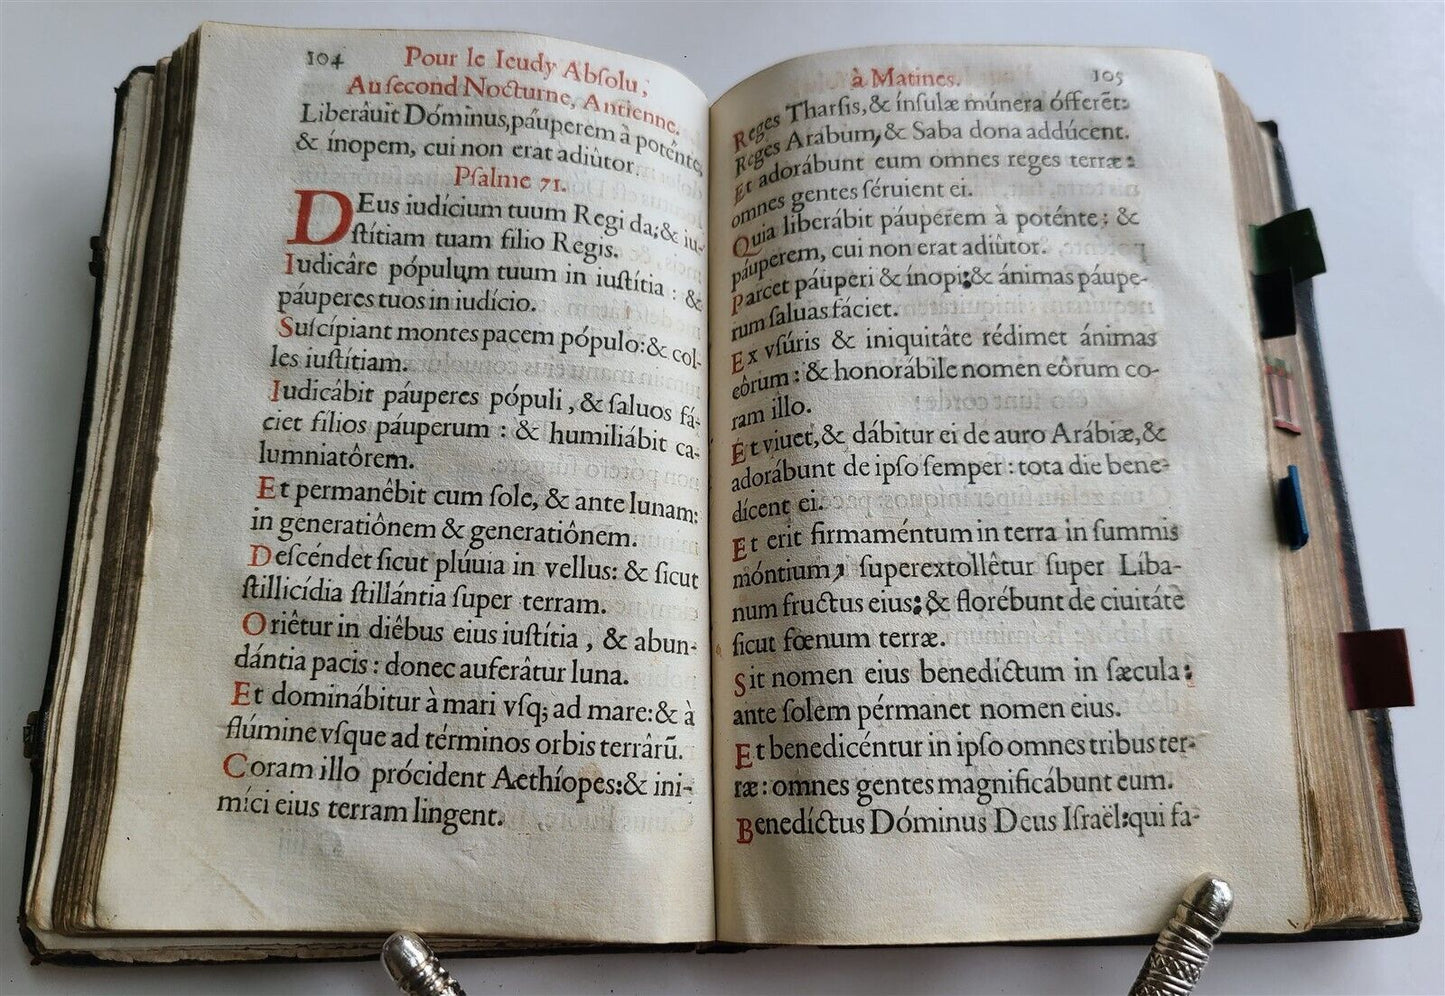 104
Pour le Ieudy Abſolu,
Au ſecond Nocturne, Antienne.
Liberâuit Dóminus, páuperem à poténte,
& ínopem, cui non erat adiûtor.
Pſalme 71.
DEus iudicium tuum Regi da; & iu-
ſtítiam tuam filio Regis.
Iudicâre pópulum tuum in iuſtítia : &
páuperes tuos in iudício.
Suſcípiant montes pacem pópulo: & col-
les iuſtítiam.
Iudicábit páuperes pópuli , & ſaluos fá-
ciet fílios páuperum : & humiliábit ca-
lumniatôrem.
Et permanêbit cum ſole, & ante lunam:
in generatiônem & generatiônem.
Deſcéndet ſicut plúuia in vellus: & ſicut
ſtillicídia ſtillántia ſuper terram.
Oriêtur in diêbus eius iuſtítia , & abun-
dántia pacis : donec auferâtur luna.
Et dominábitur à mari vſq; ad mare: & à
flúmine vſque ad términos orbis terrârū.
Coram illo prócident Aethíopes: & ini-
míci eius terram lingent.
à Matines.
105
Reges Tharſis, & ínſulæ múnera ófferẽt:
Reges Arabum, & Saba dona addúcent.
Et adorábunt eum omnes reges terræ :
omnes gentes ſéruient ei.
Quia liberábit páuperem à poténte : &
páuperem, cui non erat adiûtor.
Parcet páuperi & ínopi: & ánimas páupe-
rum ſaluas fáciet.
Ex vſúris & iniquitâte rédimet ánimas
eôrum : & honorábile nomen eôrum co-
ram illo.
Et viuet, & dábitur ei de auro Arábiæ, &
adorábunt de ipſo ſemper : tota die bene-
dícent ei.
Et erit firmaméntum in terra in ſummis
móntium, ſuperextollêtur ſuper Líba-
num fructus eius: & florébunt de ciuitáte
ſicut fœnum terræ.
Sit nomen eius benedíctum in ſæcula:
ante ſolem pérmanet nomen eius.
Et benedicéntur in ipſo omnes tribus ter-
ræ : omnes gentes magnificábunt eum.
Benedíctus Dóminus Deus Iſraël: qui fa-